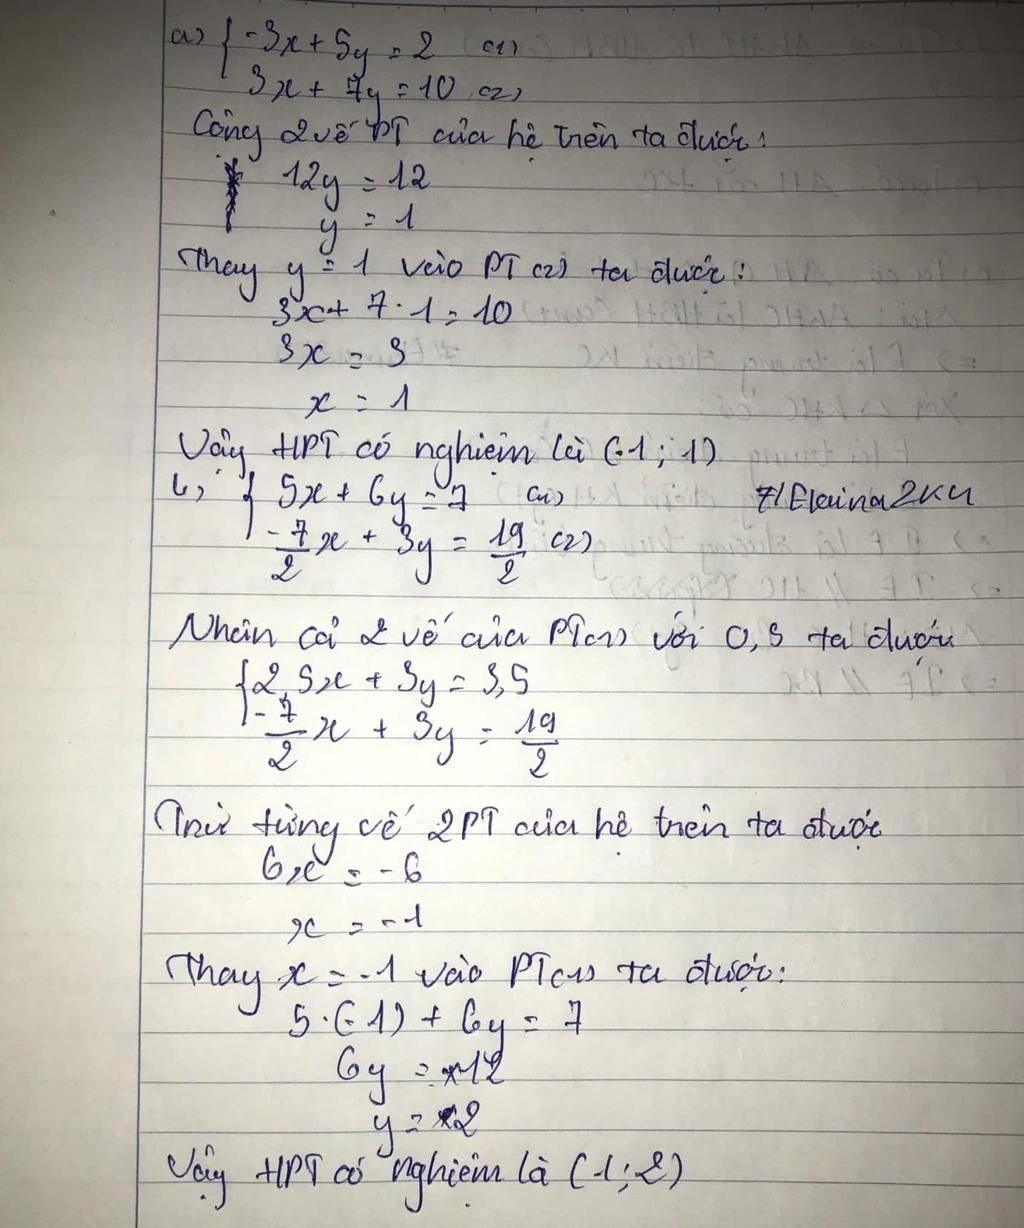 a) { -3x + 5y = 2 (1)
3x + 7y = 10 (2)
Cộng 2 vế PT của hệ trên ta được:
12y = 12
y = 1
Thay y = 1 vào PT (2) ta được:
3x + 7 · 1 = 10
3x = 3
x = 1
Vậy HPT có nghiệm là (-1; 1)
b, { 5x + 6y = 7 (1)
#Elaina2K4
-7/2 x + 3y = 19/2 (2)
Nhân cả 2 vế của PT(1) với 0,5 ta được
{ 2,5x + 3y = 3,5
-7/2 x + 3y = 19/2
Trừ từng vế 2PT của hệ trên ta được
6x = -6
x = -1
Thay x = -1 vào PT(1) ta được:
5 · (-1) + 6y = 7
6y = 12
y = 2
Vậy HPT có nghiệm là (1; 2)